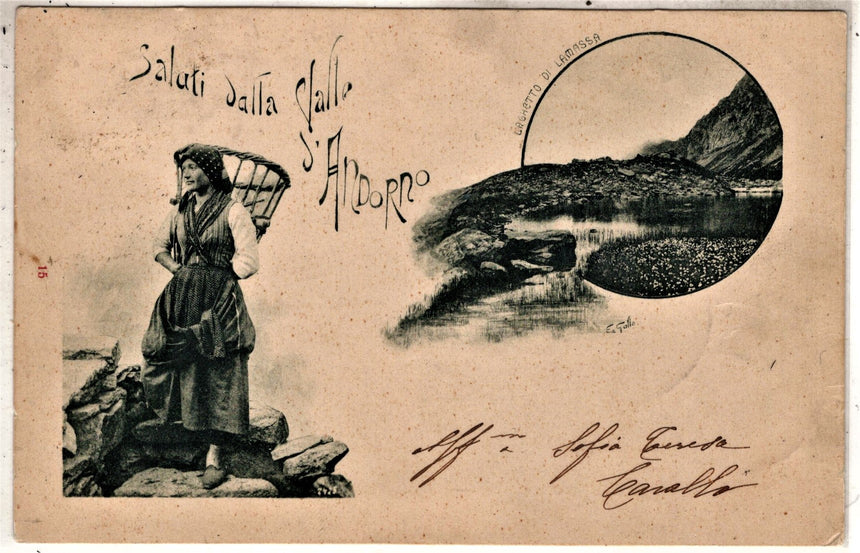 Saluti dalla Valle
d'Andorno
LAGHETTO DI LAMASSA
15
Aff.ma Sofia Teresa